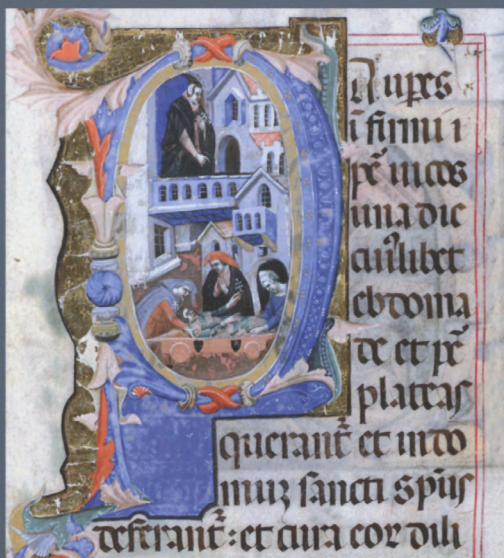 P Aupes
ĩ firmi i
pẽ uicos
una die
cuiꝰlibet
ebdoma
de et pẽ
plateas
querant᷑ et in do
muz sancti Spũs
deferant᷑: et cura eoꝝ dili